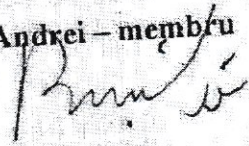 Andrei – membru